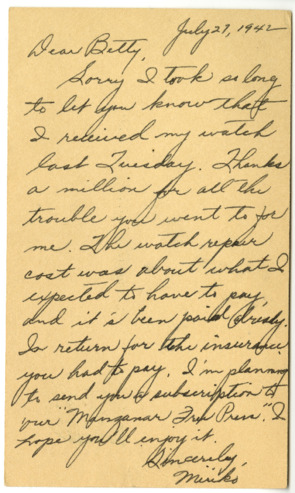 July 29, 1942
Dear Betty,
Sorry I took so long
to let you know that
I received my watch
last Tuesday. Thanks
a million for all the
trouble you went to for
me. The watch repair
cost was about what I
expected to have to pay
and it's been paid already.
In return for the insurance
you had to pay, I'm planning
to send you a subscription to
our "Manzanar Free Press." I
hope you'll enjoy it.
Sincerely,